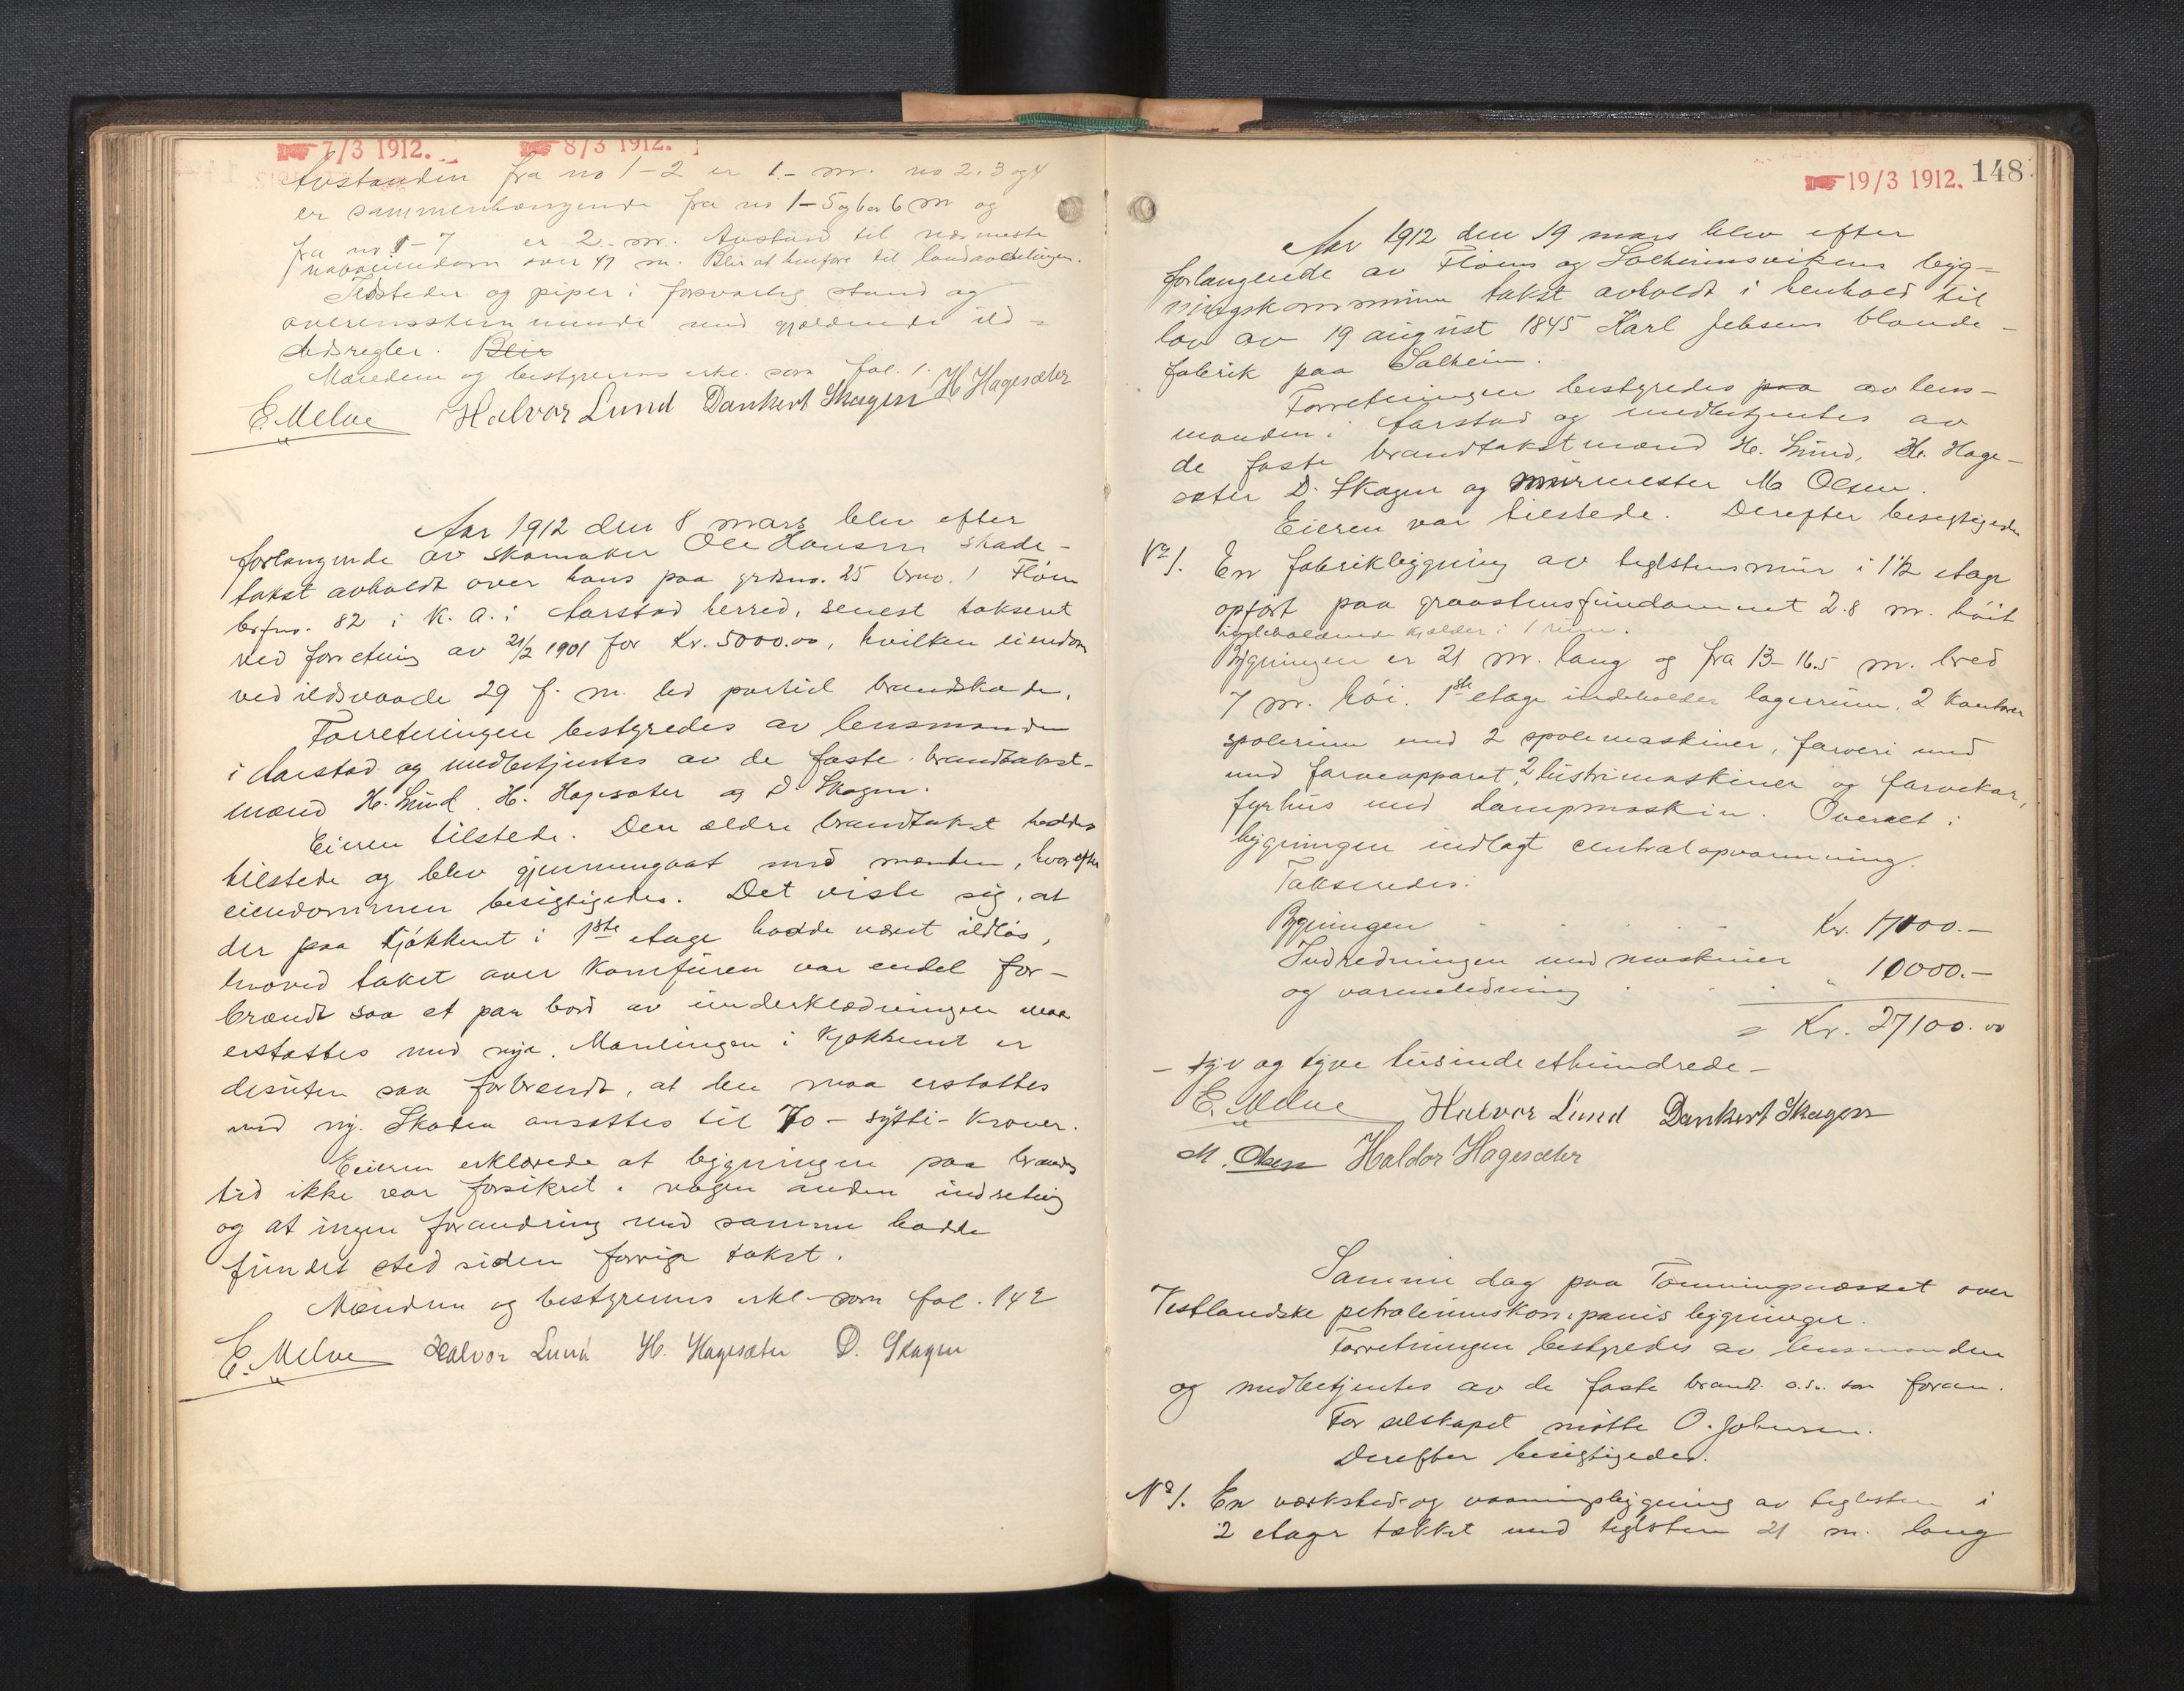 7/3 1912. 8/3 1912.
Avstanden fra no 1-2 er 1.- m. no 2, 3 og 4
er sammenhængende fra no 1-5 og 6 m og
fra no 1-7 er 2.- m. Avstand til nærmeste
naboeiendom over 47 m. Blir at henføre til landavdelingen.
Ildsteder og piper i forsvarlig stand og
overensstemmende med gjældende ild-
stedsregler. Blir
Mændene og bestyrerens erkl. som fol. 1.
E. Melve Halvor Lund Dankert Skagen H Hagesæter
Aar 1912 den 8 mars blev efter
forlangende av skomaker Ole Hansen skade-
takst avholdt over hans paa grdsno. 25 brno. 1 Fløen
brfno. 82 i K. A. i Aarstad herred, senest taksert
ved forretning av 21/2 1901 for Kr. 5000.00, hvilken eiendom
ved ildsvaade 29 f. m. led partiel brandskade.
Forretningen bestyredes av lensmanden
i Aarstad og medbetjentes av de faste brandtakst-
mænd H. Lund, H. Hagesæter og D. Skagen.
Eieren tilstede. Den ældre brandtakst hadde
tilstede og blev gjennemgaat med mænden, hvorefter
eiendommen besigtigedes. Det viste sig, at
der paa kjøkkenet i 1ste etage hadde været ildløs,
hvorved taket over komfuren var endel for-
brændt saa et par bord av underklædningen maa
erstattes med nye. Malingen i kjøkkenet er
desuten saa forbrændt, at den maa erstattes
med ny. Skaden ansattes til 70 - sytti - kroner.
Eieren erklærede at bygningen paa brandens
tid ikke var forsikret i nogen anden indretning
og at ingen forandring med samme hadde
fundet sted siden forrige takst.
Mændene og bestyrerens erkl. som fol. 142
E. Melve Halvor Lund H. Hagesæter D. Skagen
19/3 1912. 148.
Aar 1912 den 19 mars blev efter
forlangende av Fløens og Solheimsvikens byg-
ningskommission takst avholdt i henhold til
lov av 19 august 1845 Karl Jebsens blonde-
fabrik paa Solheim.
Forretningen bestyredes paa av lens-
manden i Aarstad og medbetjentes av
de faste brandtakstmænd H. Lund, H. Hage-
sæter D. Skagen og murmester M. Olsen.
Eieren var tilstede. Derefter besigtigedes
No 1. En fabrikbygning av teglstensmur i 1 1/2 etage
opført paa graastensfundament 2.8 m. høit
indeholdende kjælder i 1 rum.
Bygningen er 21 m. lang og fra 13-16.5 m. bred
7 m. høi. 1ste etage indeholder lagerrum, 2 kontorer
spolerum med 2 spolemaskiner, farveri med
med farveapparat, 2 lustrimaskiner og farvekar,
fyrhus med dampmaskin. Overalt i
bygningen indlagt centralopvarmning.
Takseredes:
Bygningen Kr. 17100.-
Indredningen med maskiner
og varmeledning " 10000.-
= Kr. 27100.00
- syv og tyve tusinde ethundrede -
E. Melve Halvor Lund Dankert Skagen
M. Olsen Haldor Hagesæter
Samme dag paa Tømmingsnæsset over
Vestlandske petroleumskompanis bygninger.
Forretningen bestyredes av lensmanden
og medbetjentes av de faste brandt. o.s.v. som foran.
For selskapet møtte O. Johnsen.
Derefter besigtigedes.
No 1. En verksted- og vaaningsbygning av teglsten i
2 etager tækket med teglsten 21 m. lang